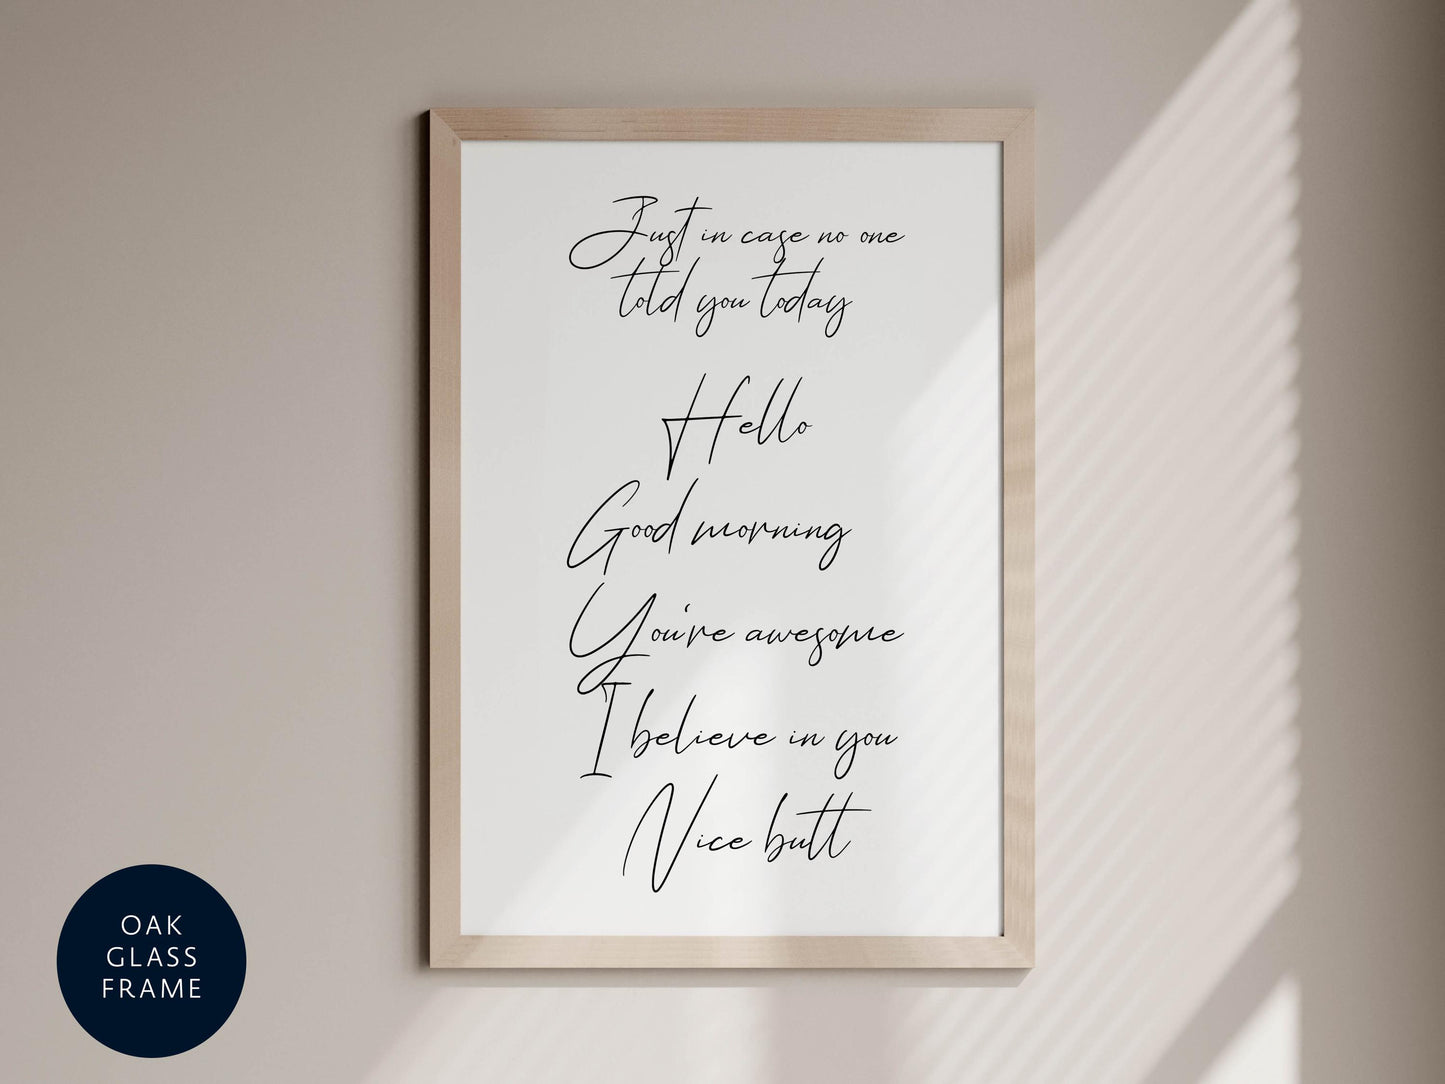 Just in case no one
told you today
Hello
Good morning
You're awesome
I believe in you
Nice butt
OAK
GLASS
FRAME